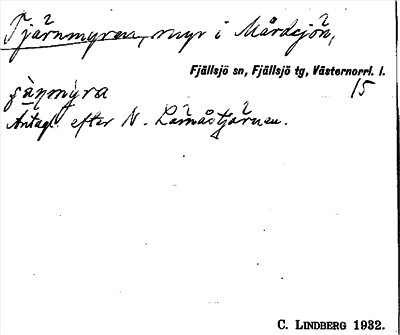 Tjärnmyren, myr i Mårdsjön,
Fjällsjö sn, Fjällsjö tg, Västernorrl. l.
15
Antagl. efter N. Lamåstjärnen.
C. LINDBERG 1932.